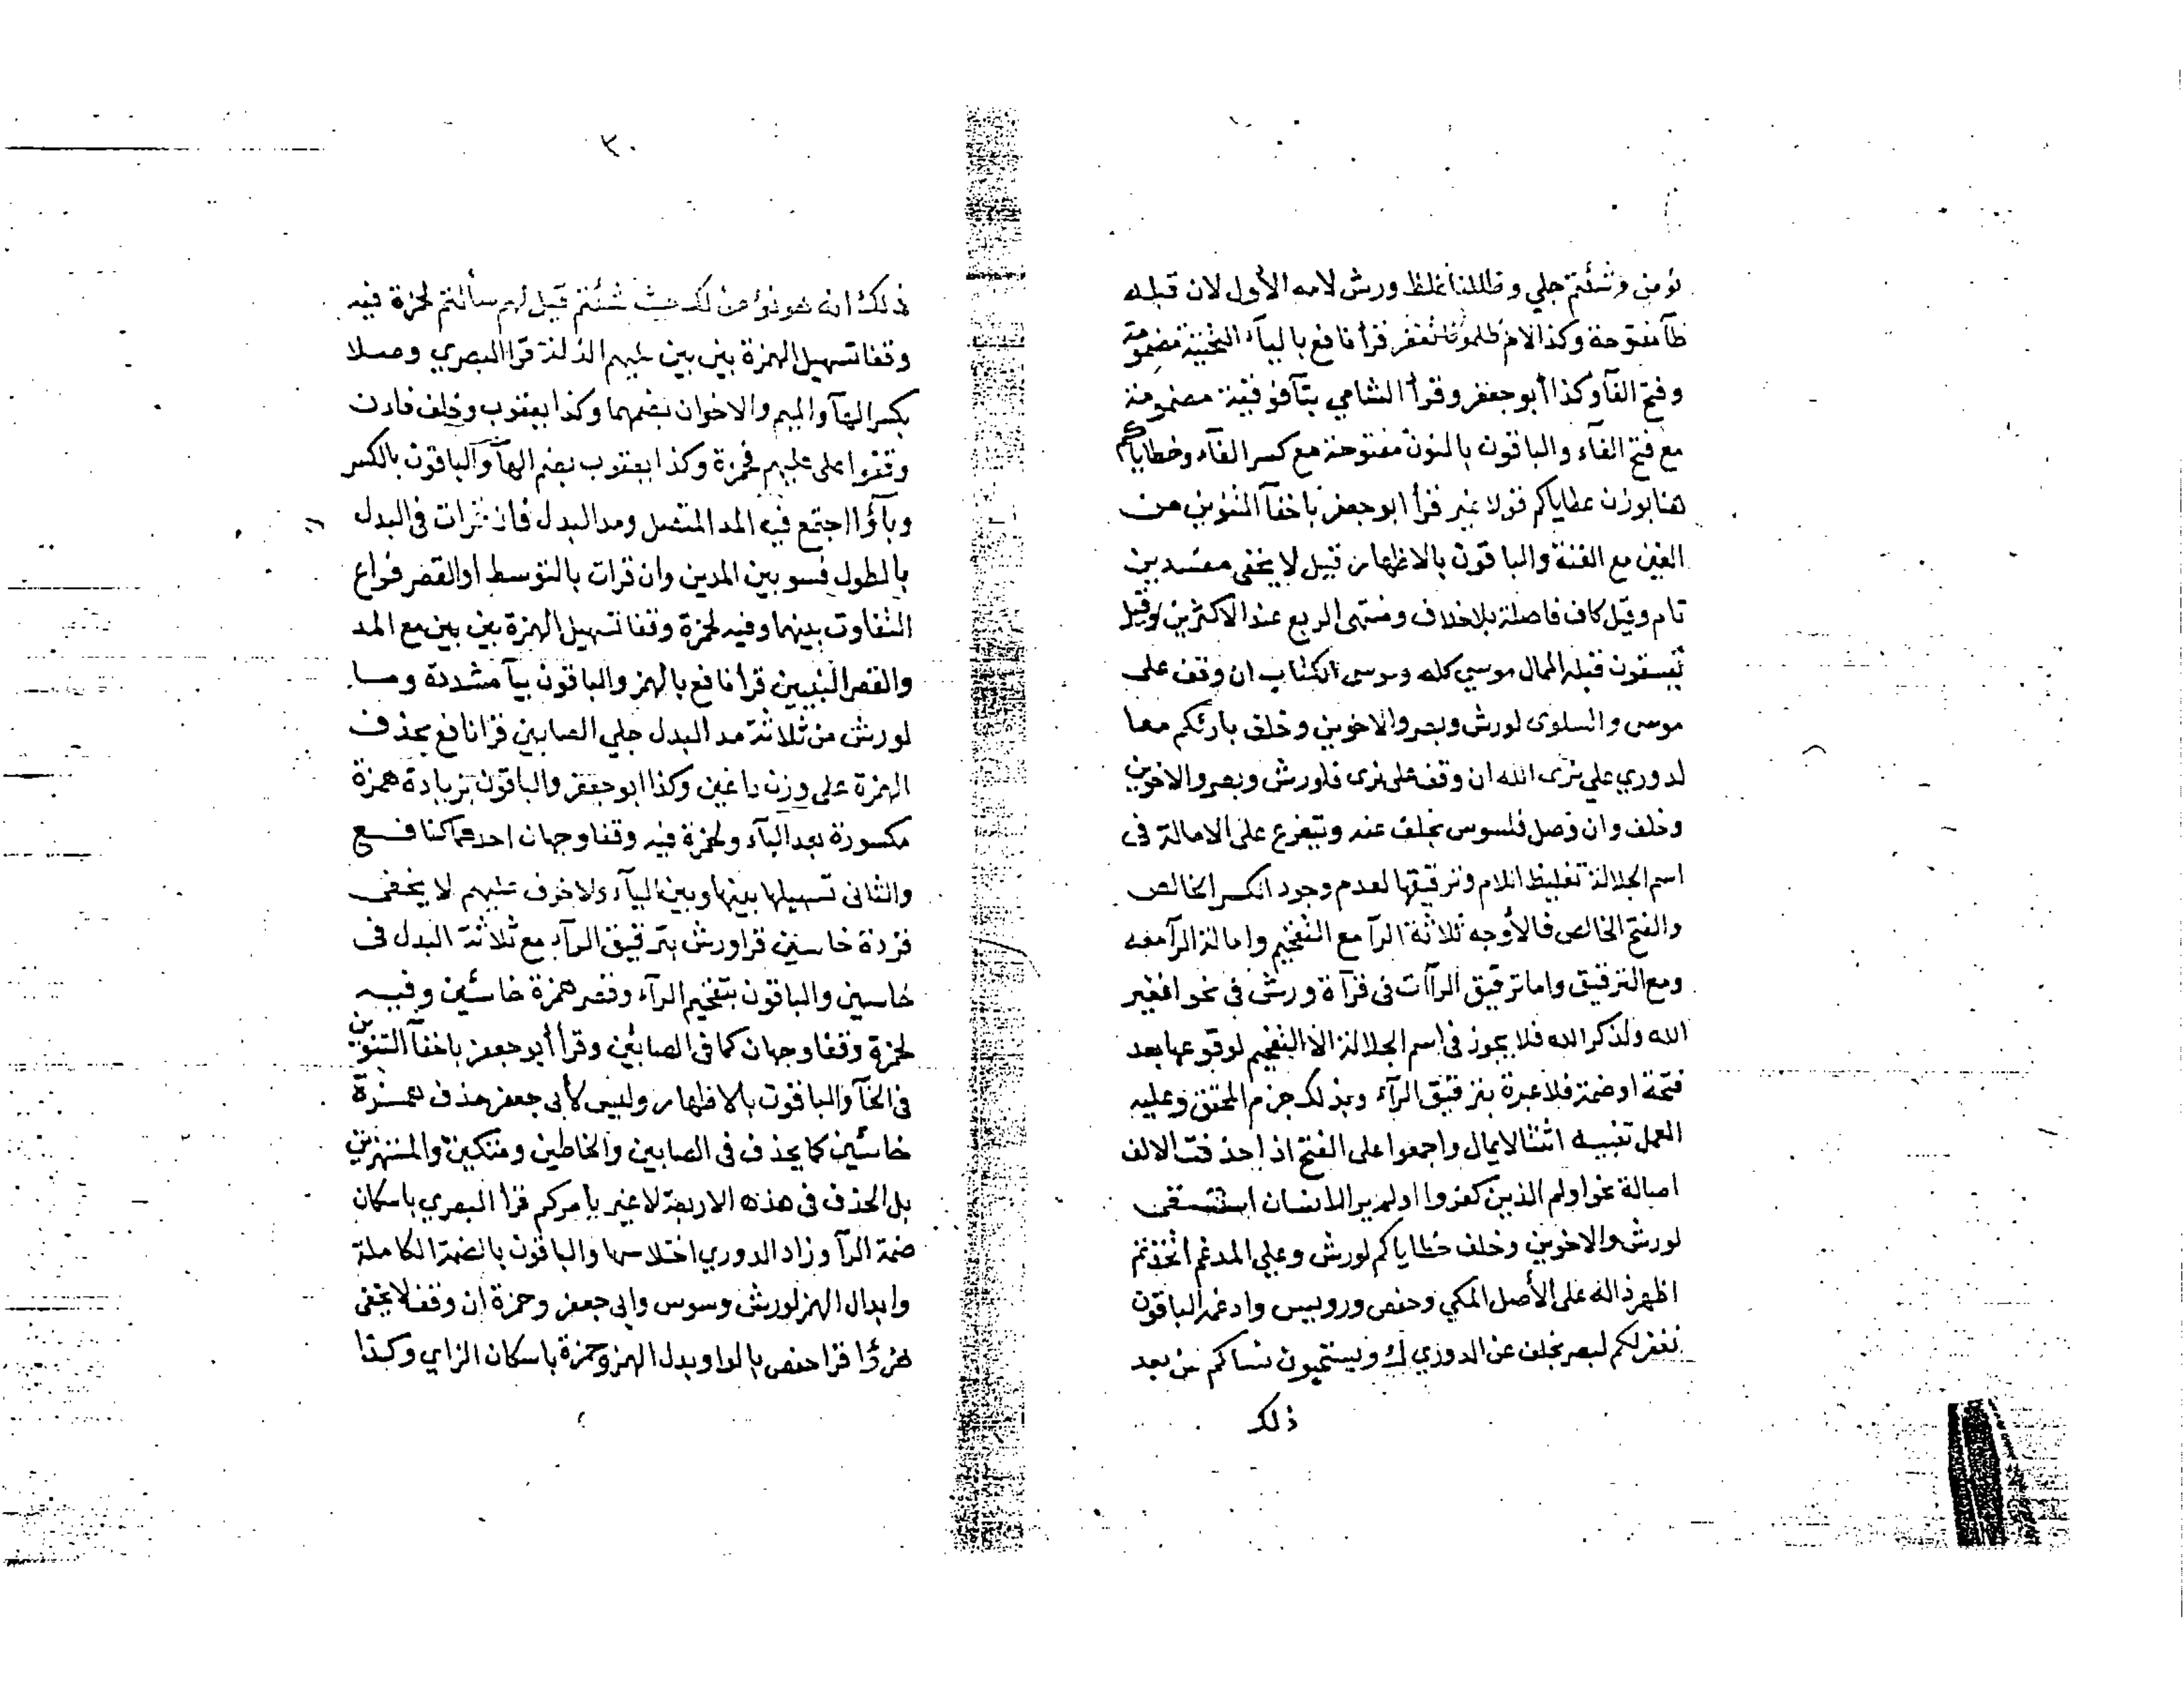 نؤمن وشئتم جلي وظللنا غلظ ورش لامه الأول لان قبله
ظآ مفتوحة وكذا لام ظلمونا نغفر قرأ نافع باليآء التحتية مضمومة
وفتح الفآ وكذا أبو جعفر وقرأ الشامي بتآ فوقية مضمومة
مع فتح الفآء والباقون بالنون مفتوحة مع كسر الفآء وخطاياكم
هنا بوزن عطاياكم قولا غير قرأ ابو جعفر باخفآ التنوين من
الغين مع الغنة والباقون بالاظهار قيل لا يخفى مفسدين
تام وقيل كاف فاصلة بلا خلاف ومنتهى الربع عند الاكثرين وقيل
يفسقون قبله الممال موسى كله وموسى الكتاب ان وقف على
موسى والسلوى لورش وبصر والاخوين وخلف بارئكم معا
لدوري علي نرى الله ان وقف على نرى فلورش وبصر والاخوين
وخلف وان وصل فلسوس بخلف عنه ويتفرع على الامالة فى
اسم الجلالة تغليظ اللام وترقيقها لعدم وجود الكسر الخالص
والفتح الخالص فالأوجه ثلاثة الرآ مع التفخيم وامالة الرآ معه
ومع الترقيق واما ترقيق الرآات فى قرآة ورش فى نحو افغير
الله ولذكر الله فلا يجوز فى اسم الجلالة الا التفخيم لوقوعها بعد
فتحة او ضمة فلا عبرة بترقيق الرآء وبذلك جزم المحقق وعليه
العمل تنبيه اثنتا لا يمال واجمعوا على الفتح اذا حذفت الالف
اصالة نحو اولم الذين كفروا اولم ير الانسان استسقى
لورش والاخوين وخلف خطاياكم لورش وعلي المدغم اتخذتم
اظهر ذاله على الأصل المكي وحفص ورويس وادغمه الباقون
نغفر لكم لبصر بخلف عن الدوري لك ويستحيون نساكم من بعد
ذلك
٣٠
ذلك انه هو نؤمن لك حيث شئتم قيل لهم سألتم لحمزة فيه
وقفا تسهيل الهمزة بين بين عليهم الذلة قرا البصري وصلا
بكسر الهآ والميم والاخوان بضمهما وكذا يعقوب وخلف فان
وقفوا على عليهم فحمزة وكذا يعقوب بضم الهآ والباقون بالكسر
وبآؤا اجتمع فيه المد المتصل ومد البدل فان قرات فى البدل
بالطول فسو بين المدين وان قرات بالتوسط او القصر فراع
التفاوت بينهما وفيه لحمزة وقفا تسهيل الهمزة بين بين مع المد
والقصر النبيين قرأ نافع بالهمز والباقون بيآ مشددة وما
لورش من ثلاثة مد البدل جلي الصابين قرا نافع بحذف
الهمزة على وزن داعين وكذا ابو جعفر والباقون بزيادة همزة
مكسورة بعد البآء ولحمزة فيه وقفا وجهان احدهما كنافع
والثانى تسهيلها بينها وبين اليآء ولا خوف عليهم لا يخفى
قردة خاسين قرا ورش بترقيق الرآء مع ثلاثة البدل فى
خاسين والباقون بتفخيم الرآء وقصر همزة خاسئين وفيه
لحمزة وقفا وجهان كما فى الصابئين وقرا أبو جعفر باخفآ التنوين
فى الخآ والباقون بالاظهار وليس لأبى جعفر حذف همزة
خاسئين كما يحذف فى الصابين والخاطين ومتكين والمستهزين
بل الحذف فى هذه الاربعة لا غير يامركم قرا البصري باسكان
ضمة الرآ وزاد الدوري اختلاسها والباقون بالضمة الكاملة
وابدال الهمز لورش وسوس وابى جعفر وحمزة ان وقف لا يخفى
هزؤا قرا حفص بالواو بدل الهمز وحمزة باسكان الزاي وكذا